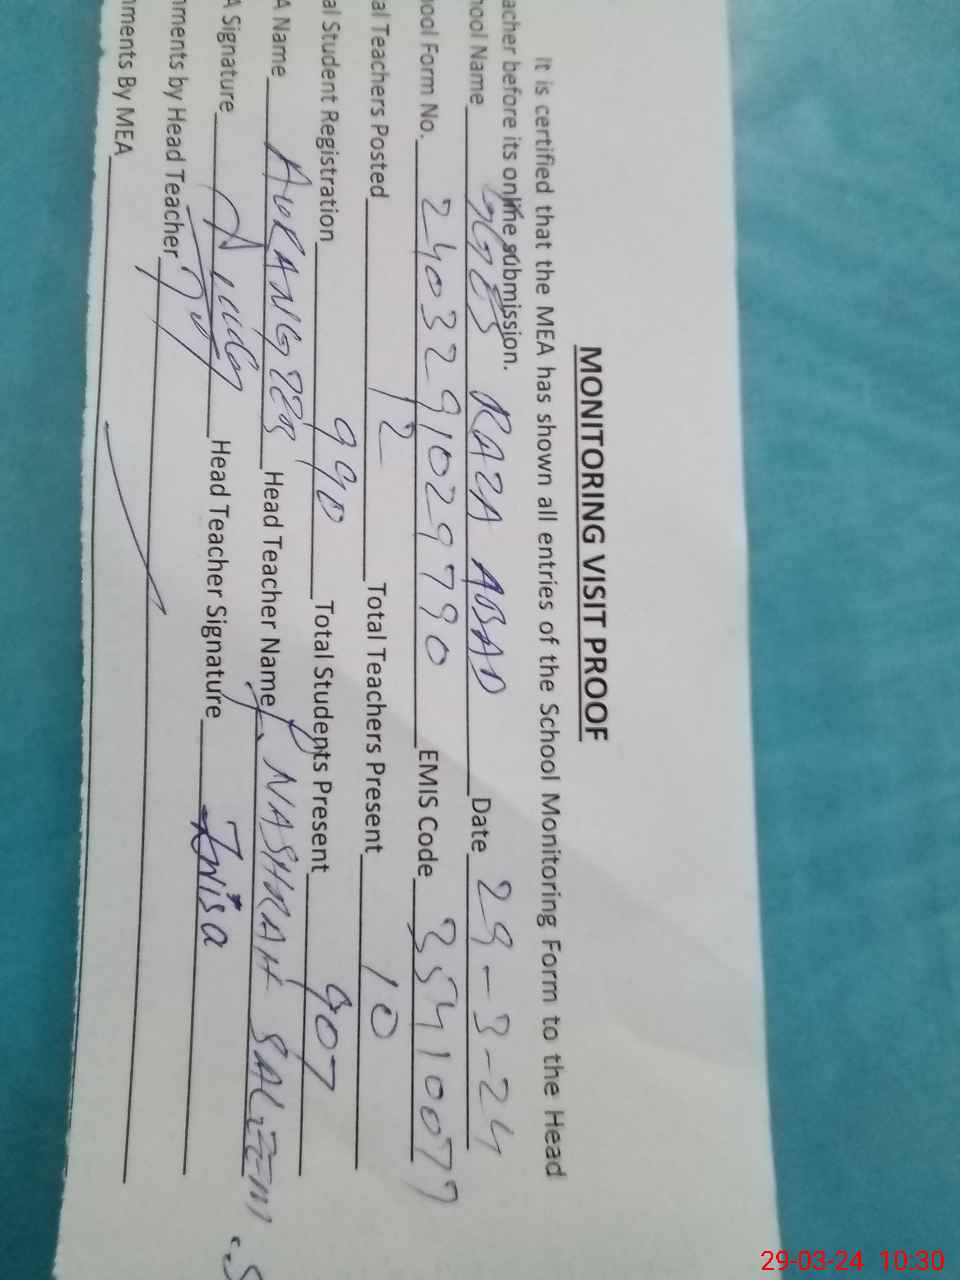 MONITORING VISIT PROOF
It is certified that the MEA has shown all entries of the School Monitoring Form to the Head
acher before its online submission.
ool Name GGES RAZA ABAD Date 29-3-24
ool Form No. 2403291029790 EMIS Code 35410077
al Teachers Posted 12 Total Teachers Present 10
al Student Registration 990 Total Students Present 907
A Name AURANGZEB Head Teacher Name NASHRAH SALEEM
A Signature Head Teacher Signature
ments by Head Teacher
ments By MEA
29-03-24 10:30